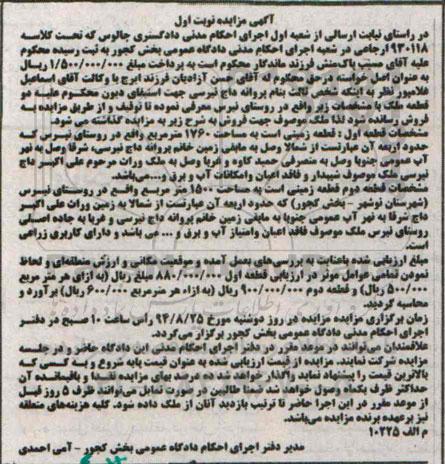 آگهی مزایده نوبت اول
در راستای نیابت ارسالی از شعبه اول اجرای احکام مدنی دادگستری چالوس که تحت کلاسه
۹۳۰۱۱۸ ارجاعی در شعبه اجرای احکام مدنی دادگاه عمومی بخش کجور به ثبت رسیده محکوم
علیه آقای مسیب پاک‌منش فرزند ماندگار محکوم است به پرداخت مبلغ ۱/۵۰۰/۰۰۰/۰۰۰ ریال
به عنوان اصل خواسته در حق محکوم له آقای حسن آزادیان فرزند ایرج با وکالت آقای اسماعیل
غلامپور نظر به اینکه شخص ثالث بنام پروانه داج نیرسی جهت استیفای دیون محکوم علیه دو
قطعه ملک با مشخصات ذیل واقع در روستای نیرس معرفی نموده تا توقیف و از طریق مزایده به
فروش رسانده شود لذا ملک موصوف جهت فروش به شرح زیر به مزایده گذاشته می شود.
مشخصات قطعه اول : قطعه زمینی است به مساحت ۱۷۶۰ مترمربع واقع در روستای نیرس که
حدود اربعه آن عبارتست از شمالا وصل به مابقی زمین خانم پروانه داج نیرسی، شرقا وصل به نهر
آب عمومی جنوبا وصل به متصرفی حمید کاوه و غربا وصل به ملک وراث مرحوم علی اکبر داج
نیرسی ملک موصوف شیبدار و فاقد اعیان وامکانات آب و برق و...می‌باشد.
مشخصات قطعه دوم قطعه زمینی است به مساحت ۱۵۰۰ متر مربع واقع در روستای نیرس
(شهرستان نوشهر - بخش کجور) که حدود اربعه آن عبارتست از شمالا به زمین وراث علی اکبر
داج شرقا به نهر آب عمومی جنوبا به مابقی زمین خانم پروانه داج نیرسی و غربا به جاده اصلی
روستای نیرس ملک موصوف فاقد اعیان وامتیاز آب و برق و ... می باشد و دارای کاربری زراعی
است.
مبلغ ارزیابی شده باعنایت به بررسی‌های بعمل آمده و موقعیت مکانی و ارزش منطقه‌ای و لحاظ
نمودن تمامی عوامل موثر در ارزیابی قطعه اول ۸۸۰/۰۰۰/۰۰۰ مبلغ ریال (به ازای هر متر مربع
۵۰۰/۰۰۰ ریال) و قطعه دوم ۹۰۰/۰۰۰/۰۰۰ ریال (به ازاء هر مترمربع ۶۰۰/۰۰۰ ریال) برآورد و
محاسبه گردید.
زمان برگزاری مزایده مزایده در روز دوشنبه مورخ ۹۴/۸/۲۵ راس ساعت ۱۰ صبح در دفتر
اجرای احکام مدنی دادگاه عمومی بخش کجور برگزار می‌گردد.
علاقمندان می‌توانند در موعد مقرر در دفتر اجرای احکام مدنی این دادگاه حاضر و در جلسه
مزایده شرکت نمایند. مزایده از قیمت ارزیابی شده به عنوان قیمت پایه شروع و به کسی که
بالاترین قیمت را پیشنهاد نماید واگذار خواهد شد ده درصد بهای مزایده نقدا و باقیمانده آن
حداکثر ظرف یکماه وصول خواهد شد ضمنا طالبین در صورت تمایل می‌توانند ظرف ۵ روز قبل
از موعد مقرر در این اجرا حاضر تا ترتیب بازدید آنان از ملک داده شود. کلیه هزینه‌های متعلقه
نیز برعهده برنده مزایده می‌باشد.
م الف ۱۰۲۲۵
مدیر دفتر اجرای احکام دادگاه عمومی بخش کجور - آمی احمدی